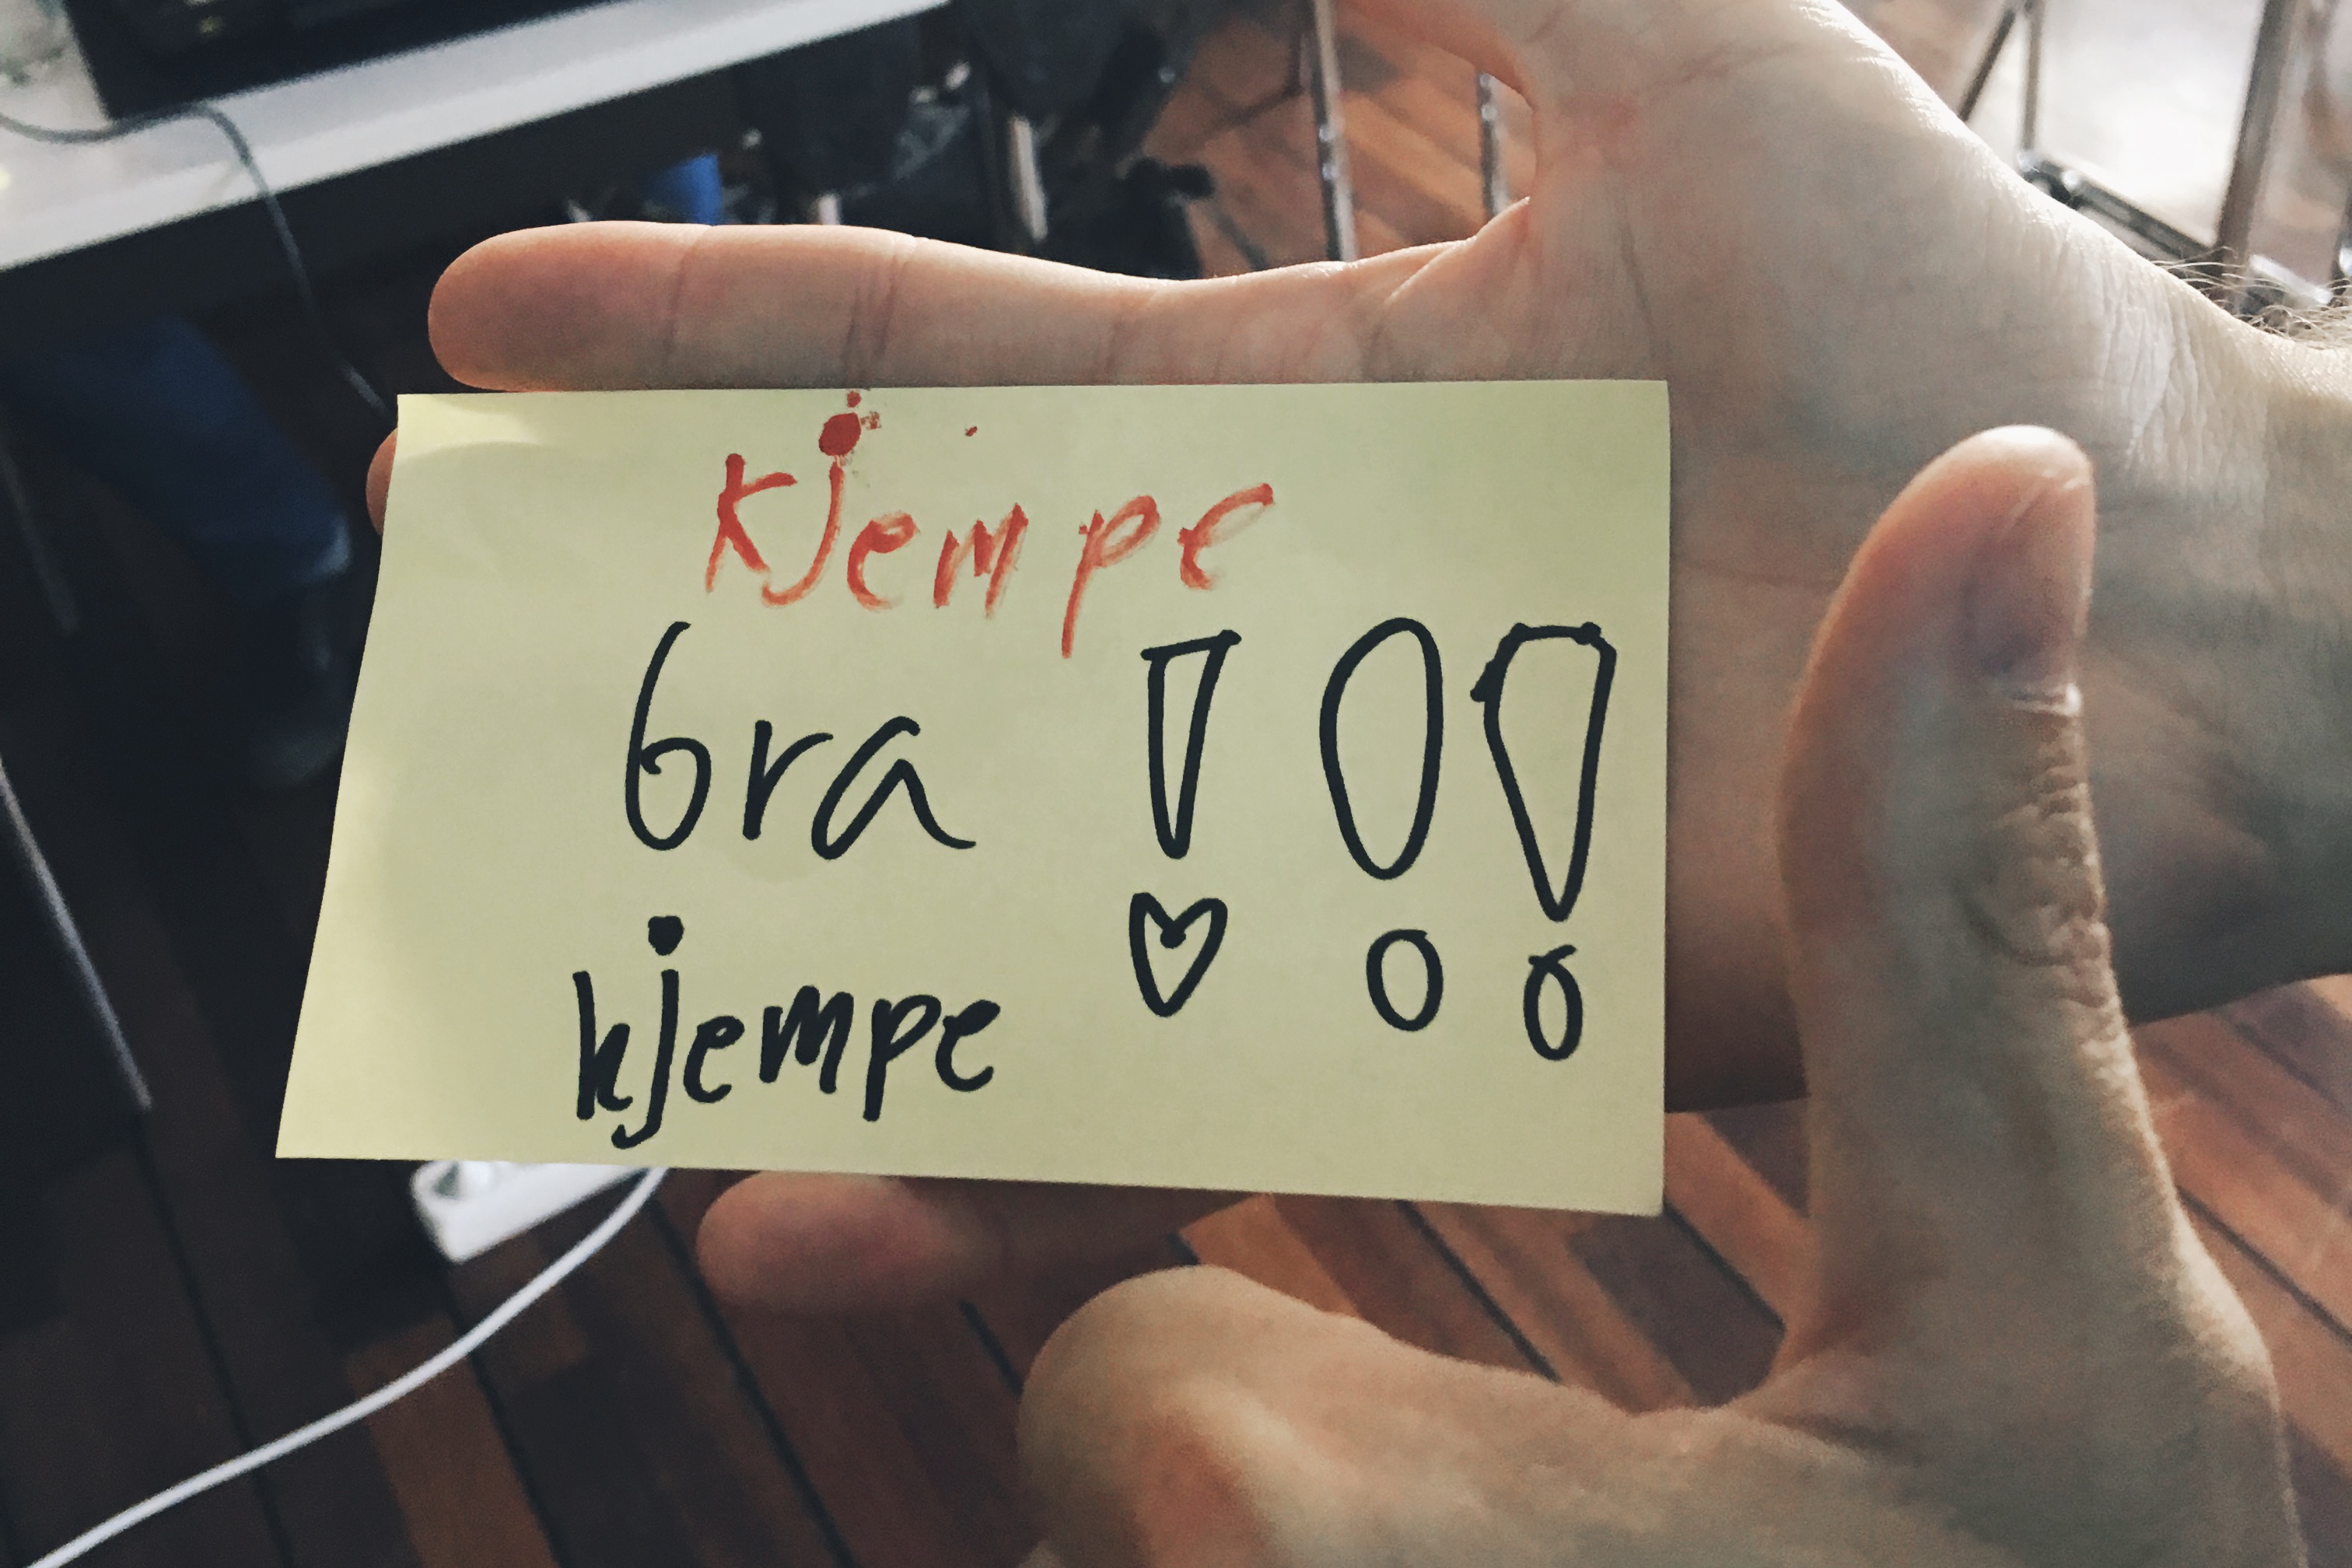 Kjempe
bra !!!
kjempe